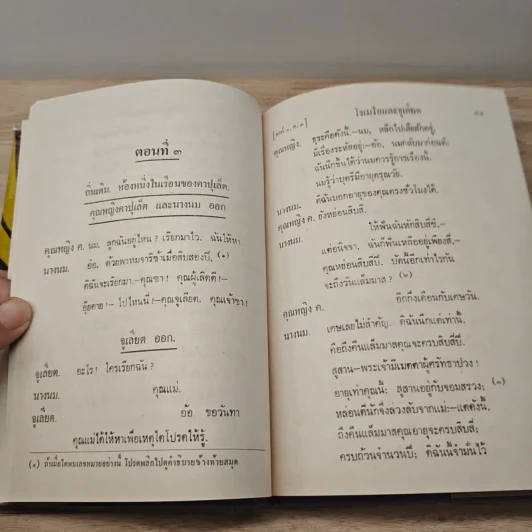 ตอนที่ ๓
ถิ่นเดิม. ห้องหนึ่งในเรือนของคาปุเล็ต.
คุณหญิงคาปุเล็ต และนางนม ออก
คุณหญิง ค. นม. ลูกฉันอยู่ไหน? เรียกมาไว. ฉันให้หา
นางนม. ย๋อ. ด้วยพรหมจารีข้าเมื่อสิบสองปี, (๑)
ดิฉันจะเรียกมา.-คุณขา! คุณผู้เลิดดี!-
อุ๊ยตาย!- ไปไหนนี่!-คุณจูเลียต. คุณเจ้าขา!
จูเลียต ออก.
จูเลียต. อะไร! ใครเรียกฉัน?
นางนม. คุณแม่.
จูเลียต. อ้อ. ขอวันทา
คุณแม่ได้ให้หาเพื่อเหตุใดโปรดให้รู้.
(๑) ถ้าเมื่อใดพบเลขหมายอย่างนี้ โปรดพลิกไปดูคำธิบายข้างท้ายสมุด
โรเมโอและจูเลียต
คุณหญิง. ธุระคือดังนี้.-นม, หลีกไปเสียสักครู่,
มีเรื่องระหัสอยู่:-ฮ้อ, นมกลับมาก่อนดี,
ฉันนึกขึ้นได้ว่านมควรรู้การเรื่องนี้.
นมรู้ว่าบุตรีมีอายุครุณวัย.
นางนม. ดิฉันบอกอายุของคุณตรงชั่วโมงได้.
คุณหญิง ค. ยังหย่อนสิบสี่.
นางนม. ให้ฟันฉันหักสิบสี่ซี่,-
แต่อนิจจา, ฉันก็ฟันเหลืออยู่เพียงสี่,-
คุณหย่อนสิบสี่ปี. บัดนี้อีกเท่าไรกัน
จะถึงวันแล็มมาส? (๒)
คุณหญิง ค. อีกกึ่งเดือนกับเศษวัน.
นางนม. เศษเลยไม่สำคัญ. ดิฉันนึกแต่เท่านี้.
คือถึงคืนแล็มมาสคุณจะครบสิบสี่ปี.
สูสาน-พระเจ้ามีเมตตาผู้ศรัทธาปวง!
อายุเท่าคุณนี้: สูสานอยู่กับจอมสรวง; (๓)
หล่อนดีนักจึ่งล่วงลับจากแม่:-แต่ดังนั้น,
ถึงคืนแล็มมาสคุณอายุจะครบสิบสี่;
ครบถ้วนจำนวนปี; ดิฉันนี้จำมั่นไว้